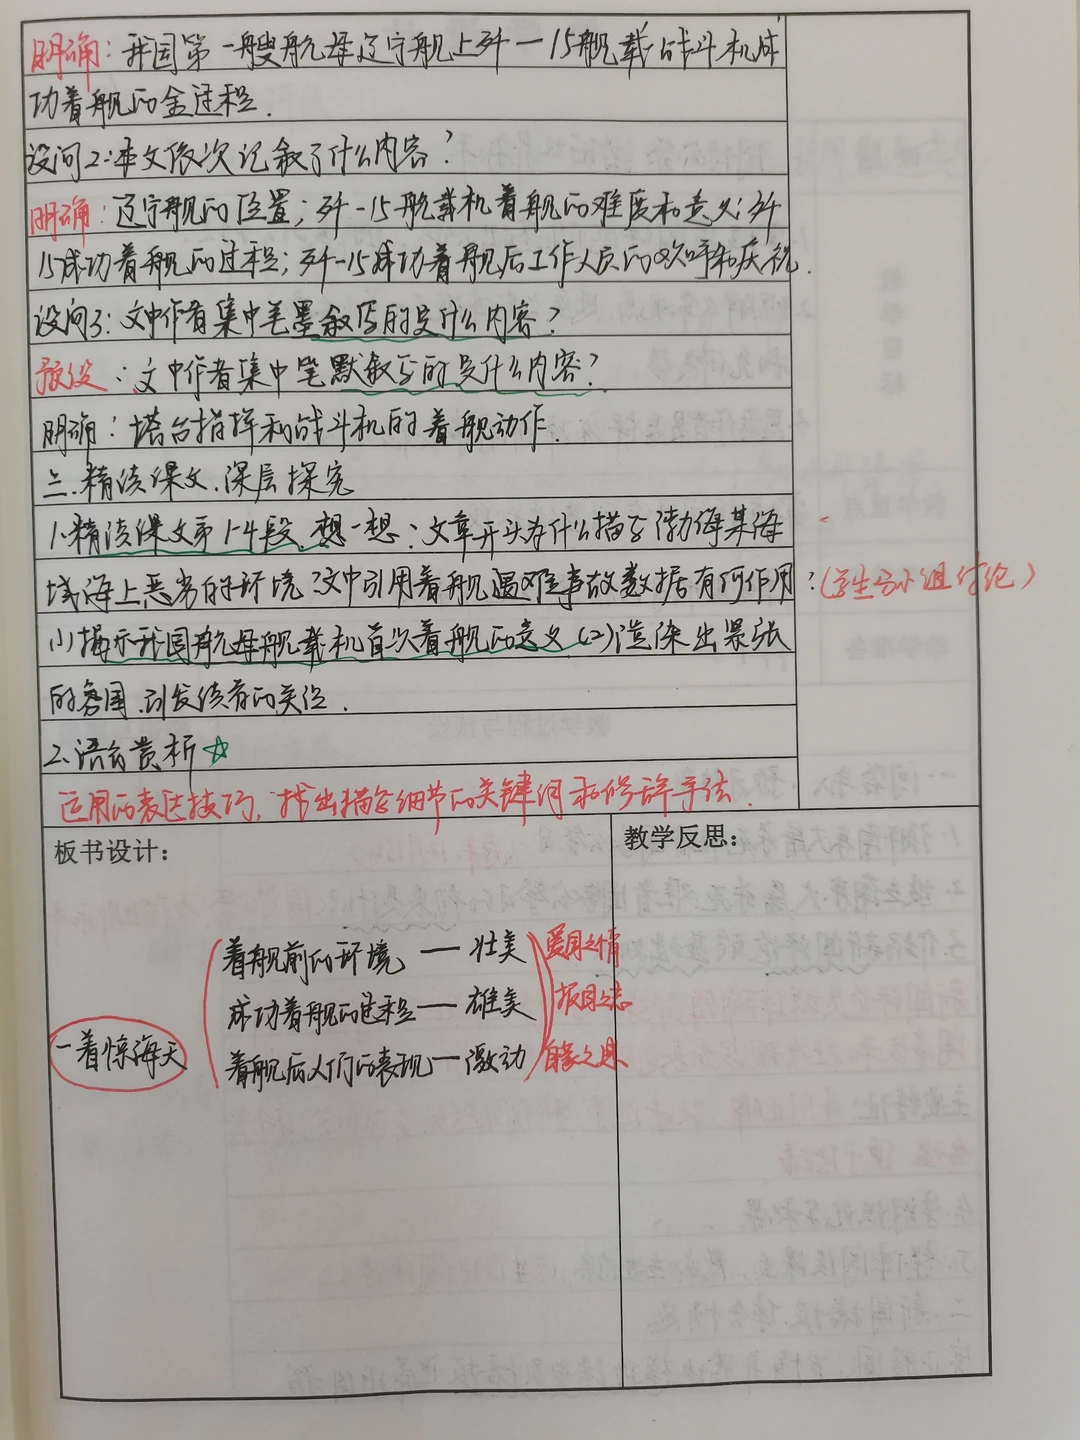 明确：我国第一艘航母辽宁舰上歼—15舰载战斗机成
功着舰的全过程.
设问2：本文依次记叙了什么内容？
明确：辽宁舰的位置；歼-15舰载机着舰的难度和意义；歼
15成功着舰的过程；歼-15成功着舰后工作人员的欢呼和庆祝.
设问3：文中作者集中笔墨叙写的是什么内容？
预设：文中作者集中笔默叙写的是什么内容？
明确：塔台指挥和战斗机的着舰动作.
三.精读课文.深层探究
1.精读课文第1-4段.想一想：文章开头为什么描写渤海某海
域海上恶劣的环境？文中引用着舰遇难事故数据有何作用？(学生分小组讨论)
(1)揭示我国航母舰载机首次着舰的意义(2)渲染出紧张
的氛围.引发读者的关注.
2.语言赏析☆
运用的表达技巧,找出描写细节的关键词和修辞手法.
板书设计：
教学反思：
着舰前的环境——壮美 爱国之情
成功着舰的过程——雄美 报国之志
一着惊海天
着舰后人们的表现—激动 自豪之息